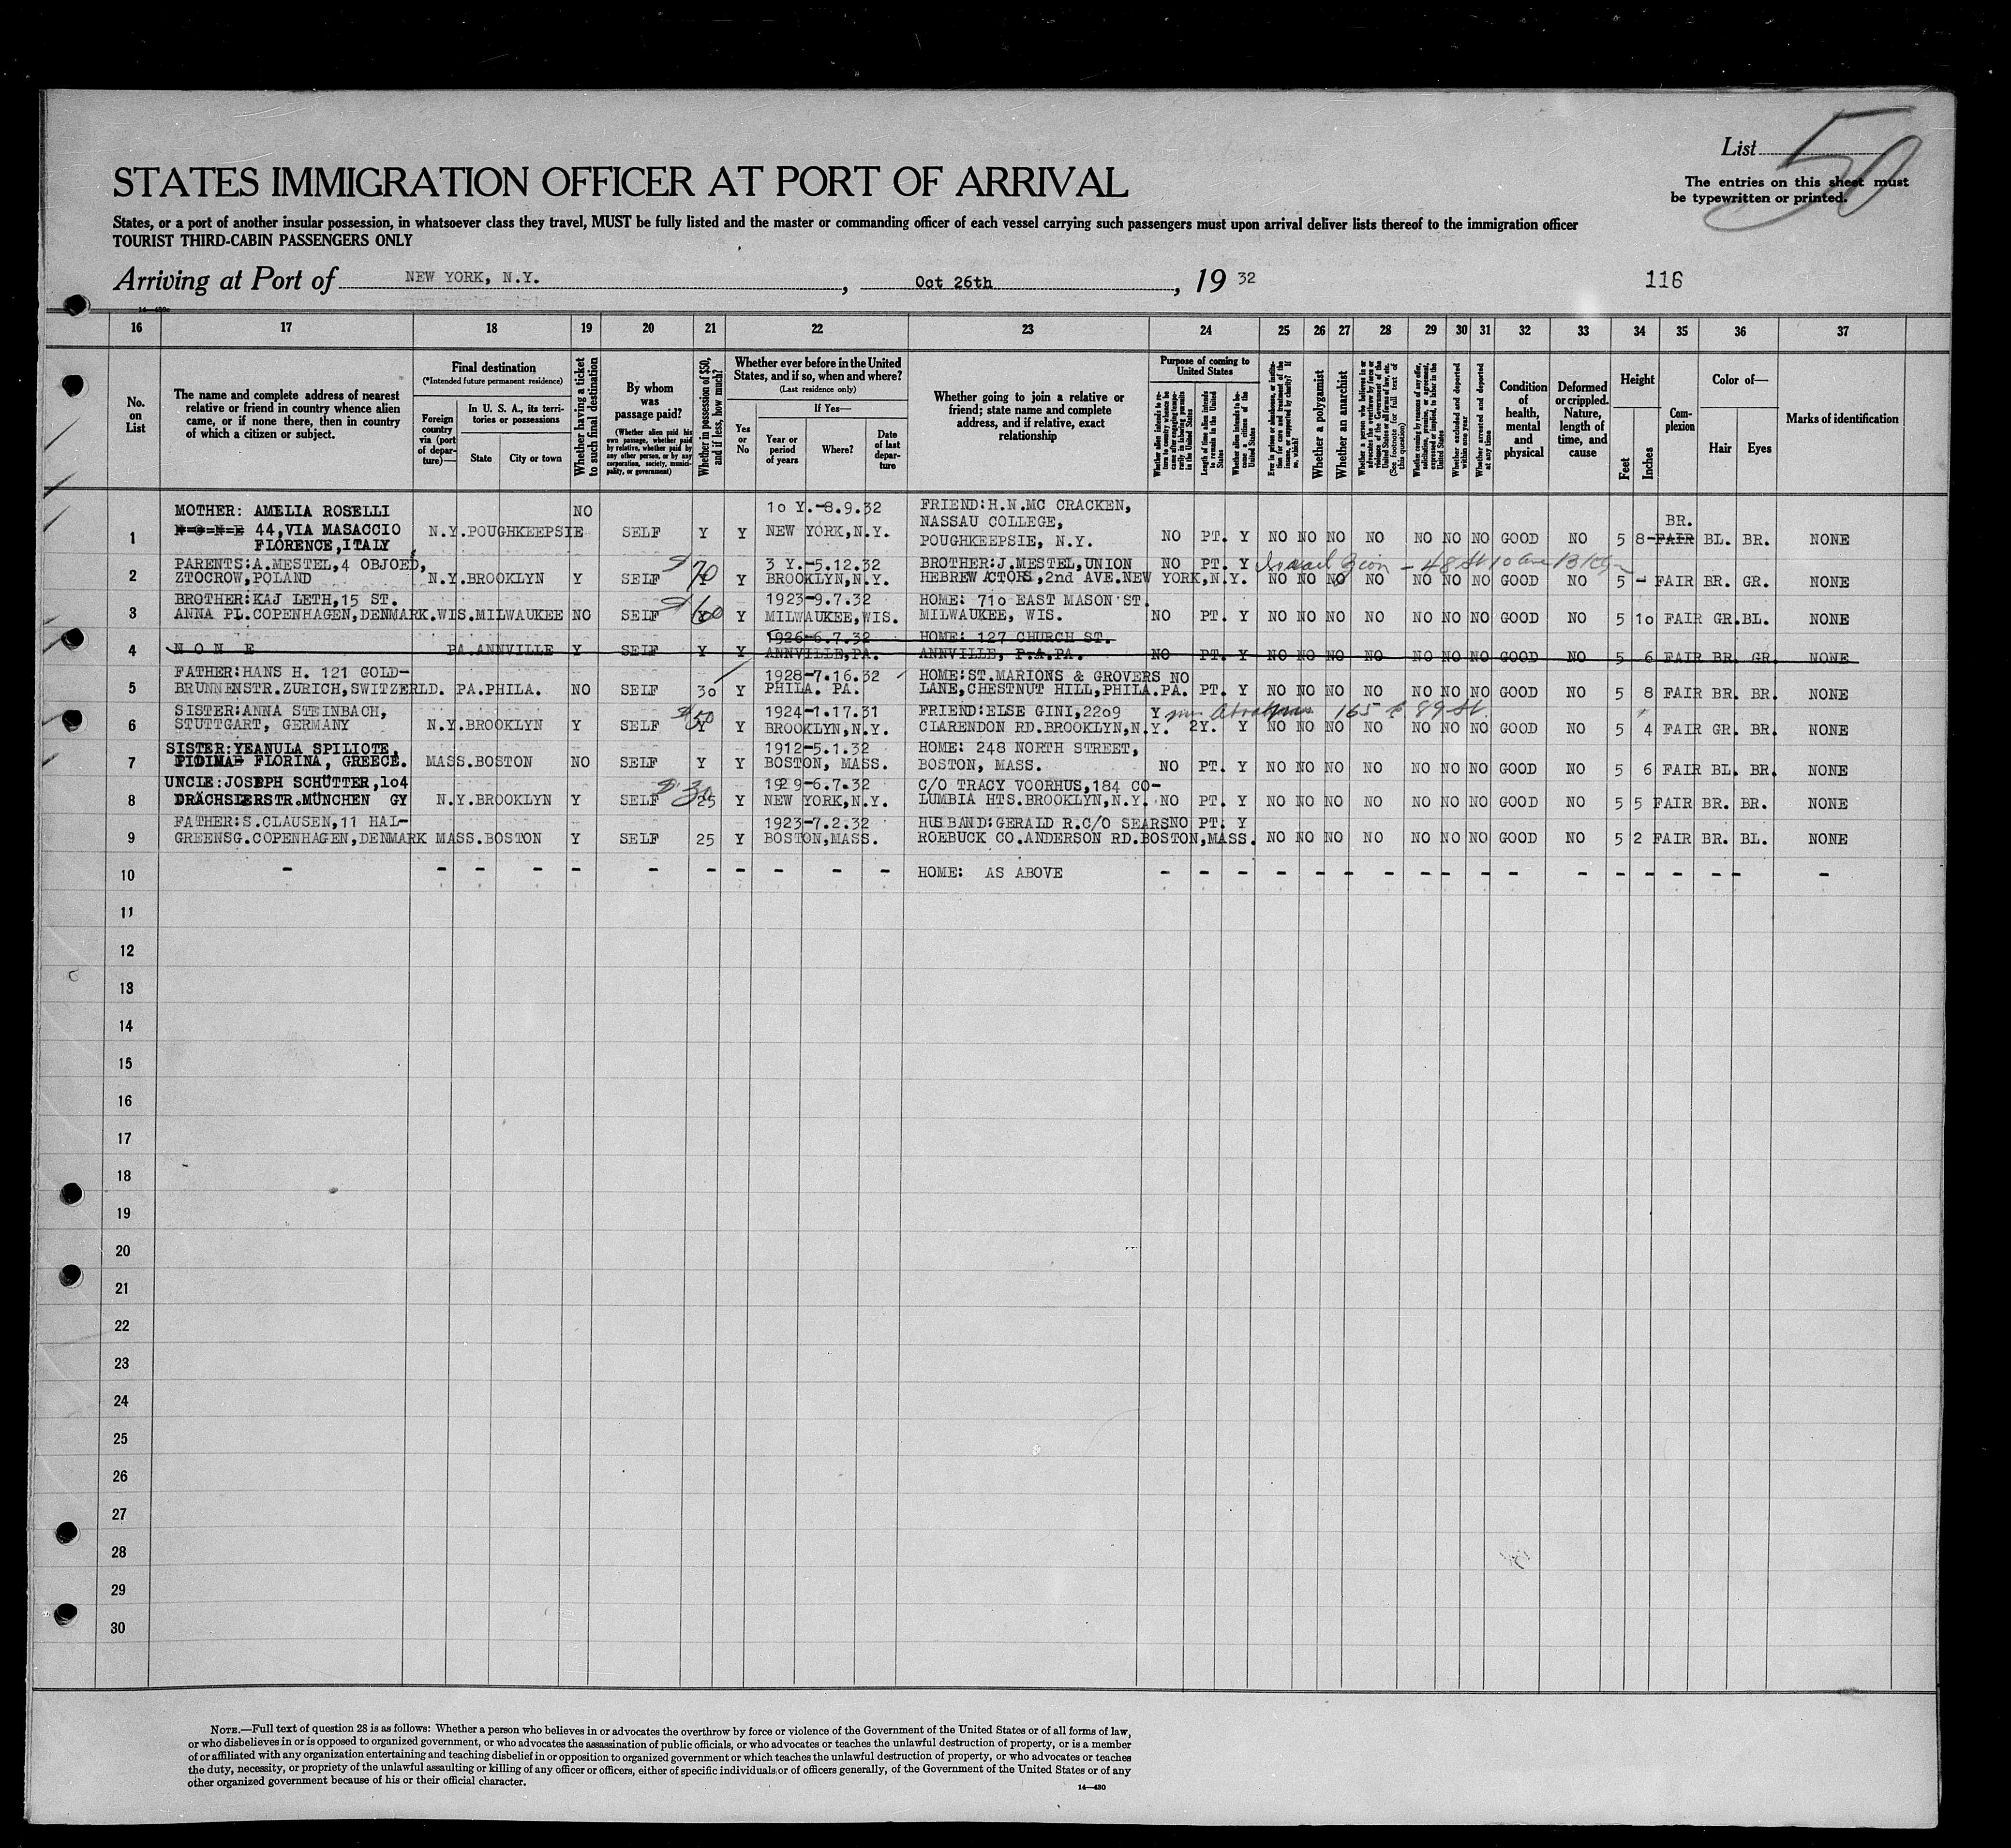 List 50
The entries on this sheet must
be typewritten or printed.
STATES IMMIGRATION OFFICER AT PORT OF ARRIVAL
States, or a port of another insular possession, in whatsoever class they travel, MUST be fully listed and the master or commanding officer of each vessel carrying such passengers must upon arrival deliver lists thereof to the immigration officer
TOURIST THIRD-CABIN PASSENGERS ONLY
Arriving at Port of NEW YORK, N.Y., Oct 26th, 19 32 116
14—430c
16 17 18 19 20 21 22 23 24 25 26 27 28 29 30 31 32 33 34 35 36 37
No. on List
The name and complete address of nearest
relative or friend in country whence alien
came, or if none there, then in country
of which a citizen or subject.
Final destination
(*Intended future permanent residence)
Foreign country via (port of departure)—
In U. S. A., its territories or possessions
State City or town
Whether having a ticket to such final destination
By whom was passage paid?
(Whether alien paid his own passage, whether paid by relative, whether paid by any other person, or by any corporation, society, municipality, or government)
Whether in possession of $50, and if less, how much?
Whether ever before in the United
States, and if so, when and where?
(Last residence only)
Yes or No
If Yes—
Year or period of years
Where?
Date of last departure
Whether going to join a relative or
friend; state name and complete
address, and if relative, exact
relationship
Purpose of coming to United States
Whether alien intends to return to country whence he came after engaging temporarily in laboring pursuits in the United States
Length of time alien intends to remain in the United States
Whether alien intends to become a citizen of the United States
Ever in prison or almshouse, or institution for care and treatment of the insane, or supported by charity? If so, which?
Whether a polygamist
Whether an anarchist
Whether a person who believes in or advocates the overthrow by force or violence of the Government of the United States or all forms of law, etc. (See footnote for full text of this question)
Whether coming by reason of any offer, solicitation, promise, or agreement, expressed or implied, to labor in the United States
Whether excluded and deported within one year
Whether arrested and deported at any time
Condition of health, mental and physical
Deformed or crippled. Nature, length of time, and cause
Height
Feet Inches
Complexion
Color of—
Hair Eyes
Marks of identification
MOTHER: AMELIA ROSELLI NO 10 Y.-8.9.32 FRIEND:H.N.MC CRACKEN,
N-O-N-E 44,VIA MASACCIO N.Y.POUGHKEEPSIE SELF Y Y NEW YORK,N.Y. NASSAU COLLEGE, BR.
1 FLORENCE,ITALY POUGHKEEPSIE, N.Y. NO PT. Y NO NO NO NO NO NO NO GOOD NO 5 8 FAIR BL. BR. NONE
PARENTS:A.MESTEL,4 OBJOED, $70 3 Y.-5.12.32 BROTHER:J.MESTEL,UNION NO PT. Y Israel Zion - 48 St 10 Ave Bklyn
2 ZTOCROW,POLAND N.Y.BROOKLYN Y SELF Y BROOKLYN,N.Y. HEBREW ACTORS,2nd AVE.NEW YORK,N.Y. NO NO NO NO NO NO NO GOOD NO 5 - FAIR BR. GR. NONE
BROTHER:KAJ LETH,15 ST. $60 1923-9.7.32 HOME: 710 EAST MASON ST.
3 ANNA PL.COPENHAGEN,DENMARK.WIS.MILWAUKEE NO SELF Y Y MILWAUKEE,WIS. MILWAUKEE, WIS. NO PT. Y NO NO NO NO NO NO NO GOOD NO 5 10 FAIR GR.BL. NONE
1926-6.7.32 HOME: 127 CHURCH ST.
4 N O N E PA.ANNVILLE Y SELF Y Y ANNVILLE,PA. ANNVILLE, P.A.PA. NO PT. Y NO NO NO NO NO NO NO GOOD NO 5 6 FAIR BR. GR. NONE
FATHER:HANS H. 121 GOLD- 1928-7.16.32 HOME:ST.MARIONS & GROVERS NO
5 BRUNNENSTR.ZURICH,SWITZERLD. PA.PHILA. NO SELF 30 Y PHILA. PA. LANE,CHESTNUT HILL,PHILA.PA. PT. Y NO NO NO NO NO NO NO GOOD NO 5 8 FAIR BR. BR. NONE
SISTER:ANNA STEINBACH, $50 1924-1.17.31 FRIEND:ELSE GINI,2209 Y 165 E 89 St.
6 STUTTGART, GERMANY N.Y.BROOKLYN Y SELF Y Y BROOKLYN,N.Y. CLARENDON RD.BROOKLYN,N.Y. 2Y. Y NO NO NO NO NO NO NO GOOD NO 5 4 FAIR GR. BR. NONE
SISTER:YEANULA SPILIOTE, 1912-5.1.32 HOME: 248 NORTH STREET,
7 PIDIMA- FLORINA, GREECE. MASS.BOSTON NO SELF Y Y BOSTON, MASS. BOSTON, MASS. NO PT. Y NO NO NO NO NO NO NO GOOD NO 5 6 FAIR BL. BR. NONE
UNCLE:JOSEPH SCHÜTTER,104 $30 1929-6.7.32 C/O TRACY VOORHUS,184 CO-
8 DRÄCHSLERSTR.MÜNCHEN GY N.Y.BROOKLYN Y SELF 25 Y NEW YORK,N.Y. LUMBIA HTS.BROOKLYN,N.Y. NO PT. Y NO NO NO NO NO NO NO GOOD NO 5 5 FAIR BR. BR. NONE
FATHER:S.CLAUSEN,11 HAL- 1923-7.2.32 HUSBAND:GERALD R.C/O SEARS NO PT. Y
9 GREENSG.COPENHAGEN,DENMARK MASS.BOSTON Y SELF 25 Y BOSTON,MASS. ROEBUCK CO.ANDERSON RD.BOSTON,MASS. NO NO NO NO NO NO NO GOOD NO 5 2 FAIR BR. BL. NONE
10 - - - - - - - - - - - HOME: AS ABOVE - - - - - - - - - - - - - - - - - -
11
12
13
14
15
16
17
18
19
20
21
22
23
24
25
26
27
28
29
30
NOTE.—Full text of question 28 is as follows: Whether a person who believes in or advocates the overthrow by force or violence of the Government of the United States or of all forms of law,
or who disbelieves in or is opposed to organized government, or who advocates the assassination of public officials, or who advocates or teaches the unlawful destruction of property, or is a member
of or affiliated with any organization entertaining and teaching disbelief in or opposition to organized government or which teaches the unlawful destruction of property, or who advocates or teaches
the duty, necessity, or propriety of the unlawful assaulting or killing of any officer or officers, either of specific individuals or of officers generally, of the Government of the United States or of any
other organized government because of his or their official character.
14—430